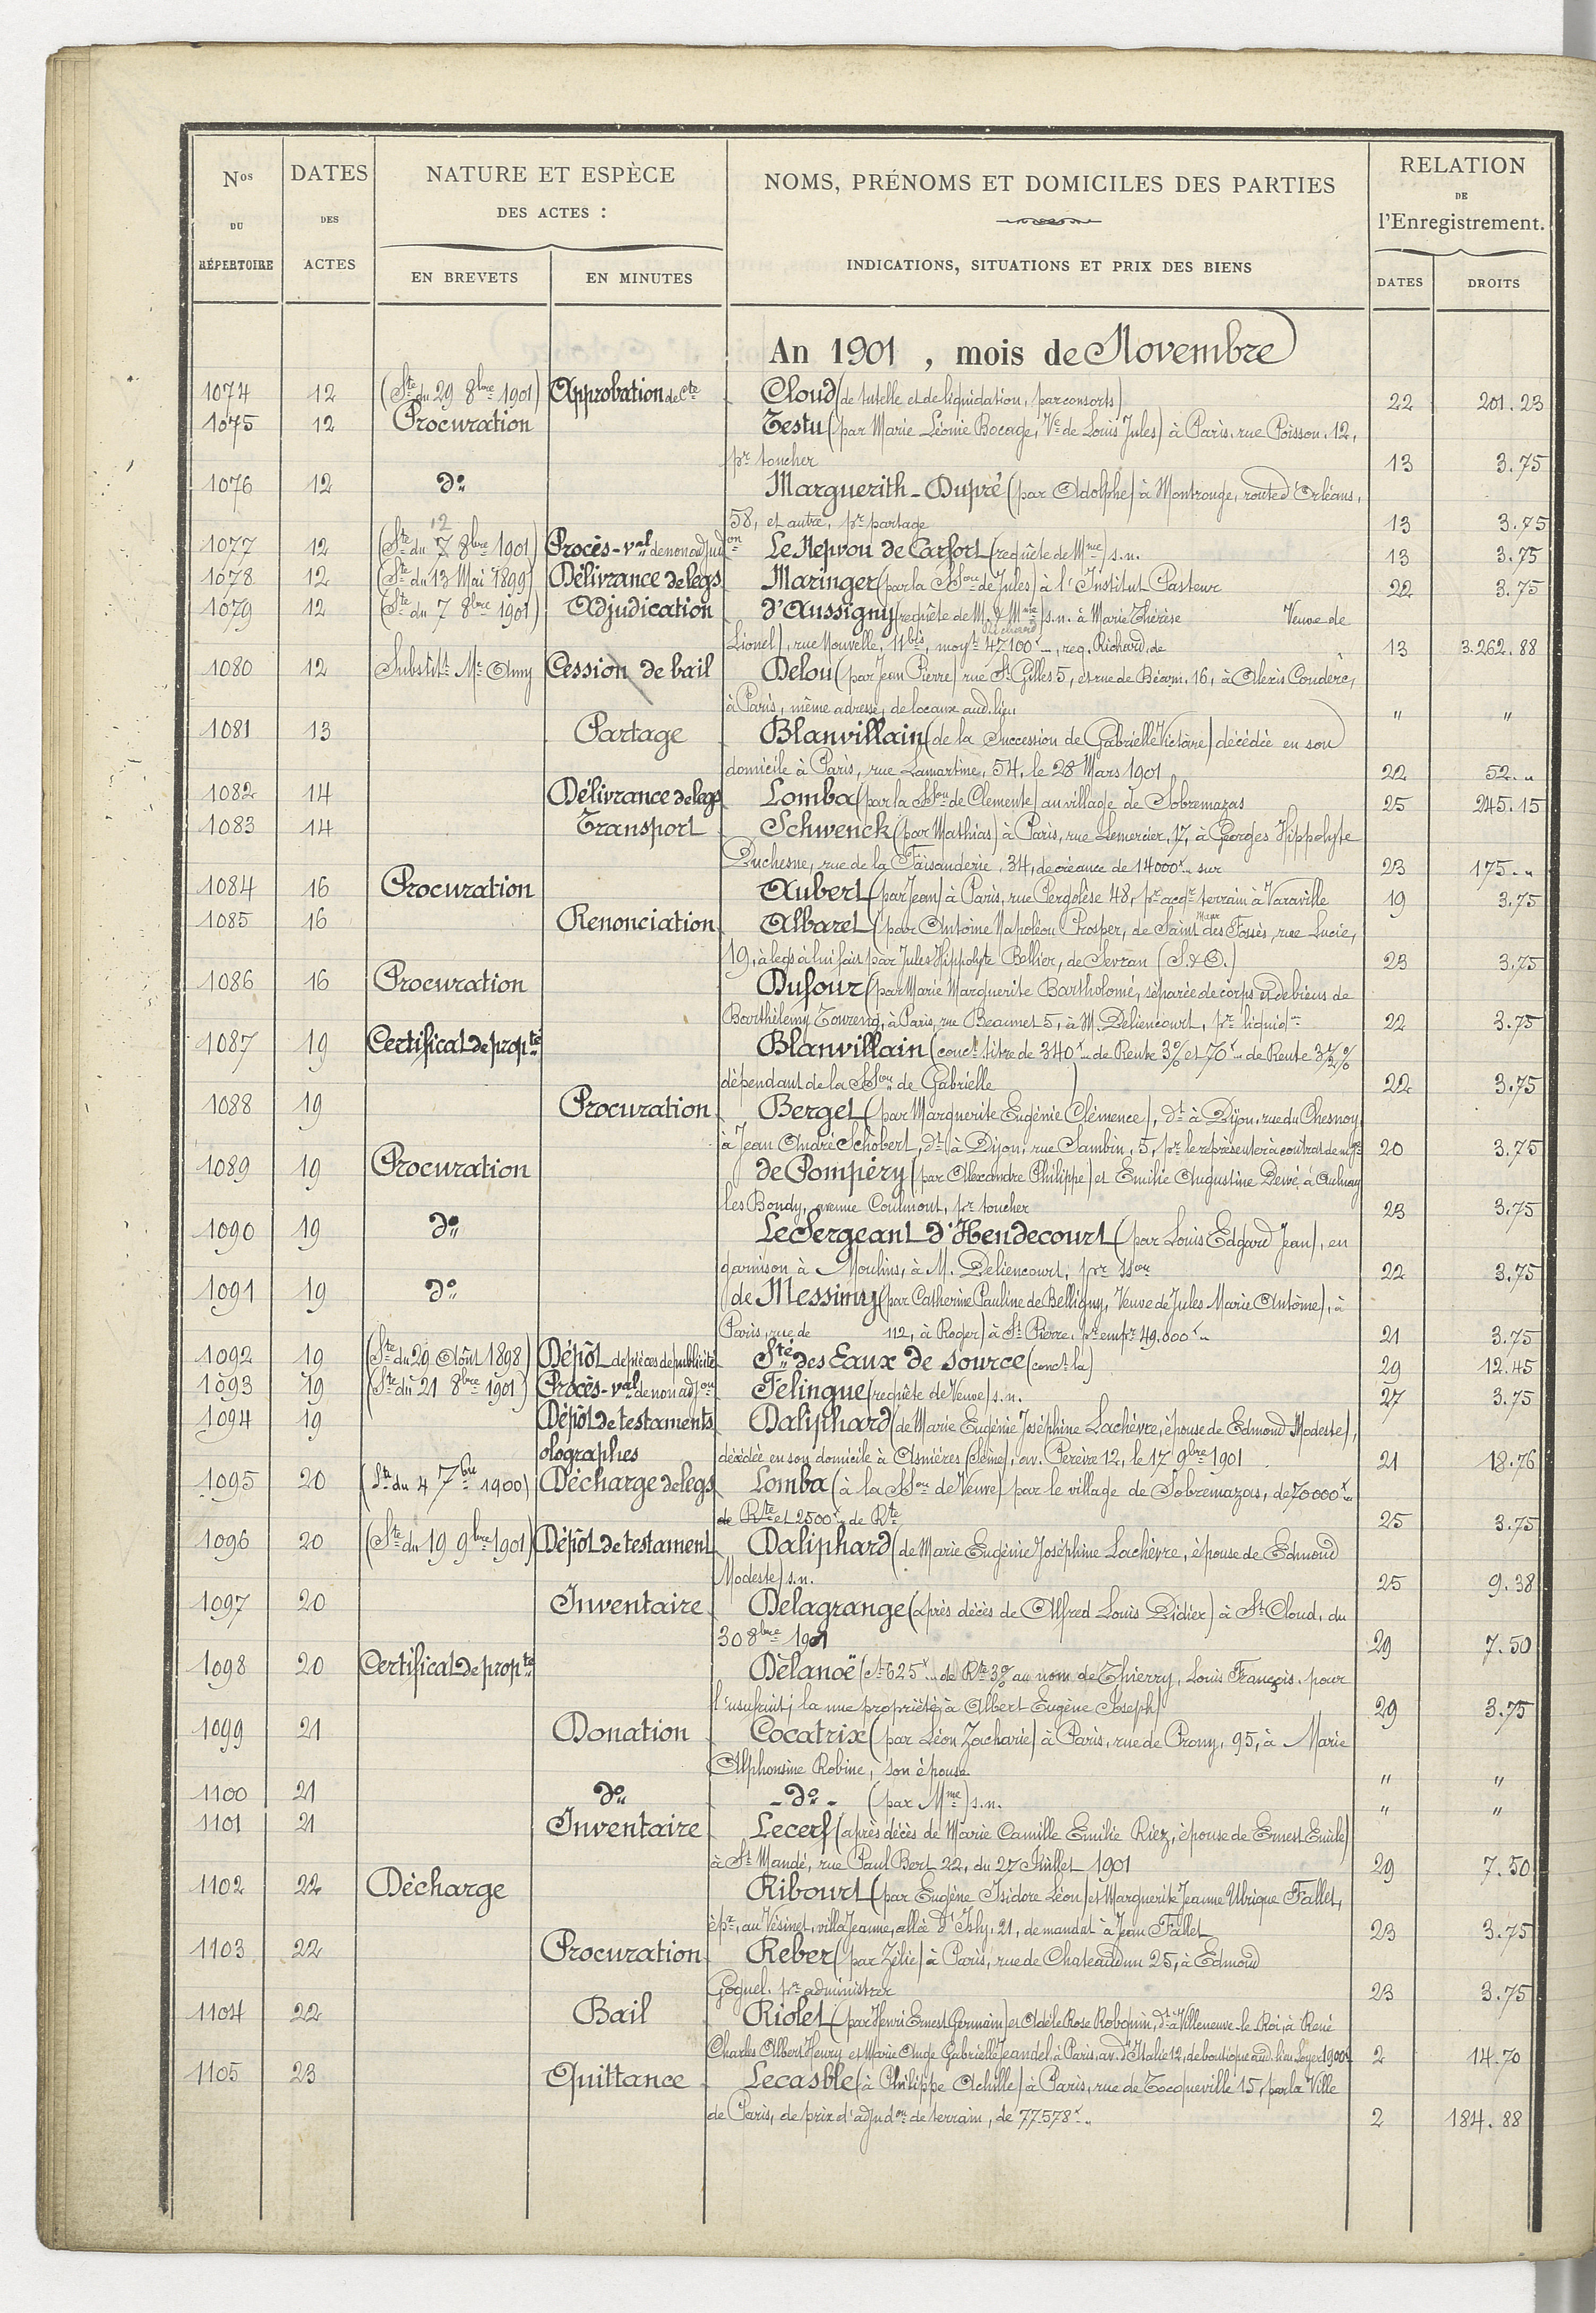 Nos DU RÉPERTOIRE
DATES DES ACTES
NATURE ET ESPÈCE
DES ACTES :
EN BREVETS
EN MINUTES
NOMS, PRÉNOMS ET DOMICILES DES PARTIES
INDICATIONS, SITUATIONS ET PRIX DES BIENS
RELATION
DE
l'Enregistrement.
DATES
DROITS
An 1901 , mois de Novembre
1074 12 (Ste du 29 8bre 1901) Approbation de Cte Cloud (de tutelle et de liquidation, par consorts) 22 201.23
1075 12 Procuration Testu (par Marie Léonie Bocage, Ve de Louis Jules) à Paris, rue Poisson, 12,
pr toucher 13 3.75
1076 12 do Marguerith-Dupré (par Adolphe) à Montrouge, route d'Orléans,
58, et autre, pr partage 13 3.75
1077 12 (Ste du 7 12 8bre 1901) Procès-val de non adjudon Le Nepvou de Carfort (requête de Mme) s.n. 13 3.75
1078 12 (Ste du 13 Mai 1899) Délivrance de legs Maringer (par la SSon de Jules) à l'Institut Pasteur 22 3.75
1079 12 (Ste du 7 8bre 1901) Adjudication d'Aussigny (requête de M. & Mme) s.n. à Marie Thérèse Veuve de
Lionel), rue Nouvelle, 11bis, moyt 47100f, req. Richard, de 13 3.262.88
1080 12 Substitt Me Amy Cession de bail Delou (par Jean Pierre) rue St Gilles 5, et rue de Béarn, 16, à Alexis Couderc,
à Paris, même adresse, de locaux aud. lieu " "
1081 13 Partage Blanvillain (de la Succession de Gabrielle Victoire) décédée en son
domicile à Paris, rue Lamartine, 54, le 28 Mars 1901 22 52."
1082 14 Délivrance de legs Lomba (par la SSon de Clemente) au village de Sobremazas 25 245.15
1083 14 Transport Schwenck (par Mathias) à Paris, rue Lemercier, 17, à Georges Hippolyte
Duchesne, rue de la Faisanderie, 34, de créance de 14000f sur 23 175."
1084 16 Procuration Aubert (par Jean) à Paris, rue Pergolèse 48, pr acqr terrain à Varaville 19 3.75
1085 16 Renonciation Albaret (par Antoine Napoléon Prosper, de Saint Maur des Fossés, rue Lucie,
19, à legs à lui fait par Jules Hippolyte Bellier, de Sevran (S.&O.) 23 3.75
1086 16 Procuration Dufour (par Marie Marguerite Bartholomé, séparée de corps et de biens de
Barthélemy Toureng, à Paris, rue Beaumet 5, à M. Deliencourt, pr liquidon 22 3.75
1087 19 Certificat de propté Blanvillain (conct titre de 340f de Rente 3% et 70f de Rente 3½%
dépendant de la SSon de Gabrielle 22 3.75
1088 19 Procuration Berget (par Marguerite Eugénie Clémence), dt à Dijon, rue du Chesnoy,
à Jean André Schobert, dt à Dijon, rue Sambin, 5, pr le représenter à contrat de mge 20 3.75
1089 19 Procuration de Pompéry (par Alexandre Philippe) et Emilie Augustine Dewé, à Aulnay
les Bondy, avenue Coulmont, pr toucher 23 3.75
1090 19 do Le Sergeant d'Hendecourt (par Louis Edgard Jean), en
garnison à Moulins, à M. Deliencourt, pr SSon 22 3.75
1091 19 do de Messimy (par Catherine Pauline de Belligny, Veuve de Jules Marie Antoine), à
Paris, rue de 112, à Roger) à St Pierre, pr empr 49.000f 21 3.75
1092 19 (Ste du 29 Août 1898) Dépôt de pièces de publicité Sté des Eaux de source (conct la) 29 12.45
1093 19 (Ste du 21 8bre 1901) Procès-val de non adjon Felingue (requête de Veuve) s.n. 27 3.75
1094 19 Dépôt de testaments Daliphard (de Marie Eugénie Joséphine Lachèvre, épouse de Edmond Modeste),
olographes décédée en son domicile à Asnières (Seine), av. Pereire 12, le 17 9bre 1901 21 18.76
1095 20 (Ste du 4 7bre 1900) Décharge de legs Lomba (à la SSon de Veuve) par le village de Sobremazas, de 70000f
de Rte et 2500f de Rte 25 3.75
1096 20 (Ste du 19 9bre 1901) Dépôt de testament Daliphard (de Marie Eugénie Joséphine Lachèvre, épouse de Edmond
Modeste) s.n. 25 9.38
1097 20 Inventaire Delagrange (après décès de Alfred Louis Didier) à St Cloud, du
30 8bre 1901 29 7.50
1098 20 Certificat de propté Délanoë (ct 625f de Rte 3% au nom de Thierry, Louis François, pour
l'usufruit; la nue propriété à Albert Eugène Joseph) 29 3.75
1099 21 Donation Cocatrix (par Léon Zacharie) à Paris, rue de Prony, 95, à Marie
Alphonsine Robine, son épouse " "
1100 21 do - do - (par Mme) s.n. " "
1101 21 Inventaire Lecerf (après décès de Marie Camille Emilie Riez, épouse de Ernest Emile)
à St Mandé, rue Paul Bert 22, du 27 Juillet 1901 29 7.50
1102 22 Décharge Ribourt (par Eugène Isidore Léon) et Marguerite Jeanne Ulrique Fallet,
épx, au Vésinet, villa Jeanne, allée d'Isly, 21, de mandat à Jean Fallet 23 3.75
1103 22 Procuration Reber (par Zélie) à Paris, rue de Chateaudun 25, à Edmond
Goguel, pr administrer 23 3.75
1104 22 Bail Riolet (par Henri Ernest Germain) et Adèle Rose Robquin, dt à Villeneuve-le-Roi, à René
Charles Albert Henry et Marie Ange Gabrielle Jeandel, à Paris, av. d'Italie 12, de boutique aud. lieu Loyer 1900f 2 14.70
1105 23 Quittance Lecasble (à Philippe Achille) à Paris, rue de Tocqueville 15, par la Ville
de Paris, de prix d'adjudon de terrain, de 77578f 2 184.88